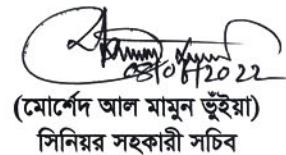 08/08/2022
(মোর্শেদ আল মামুন ভুঁইয়া)
সিনিয়র সহকারী সচিব